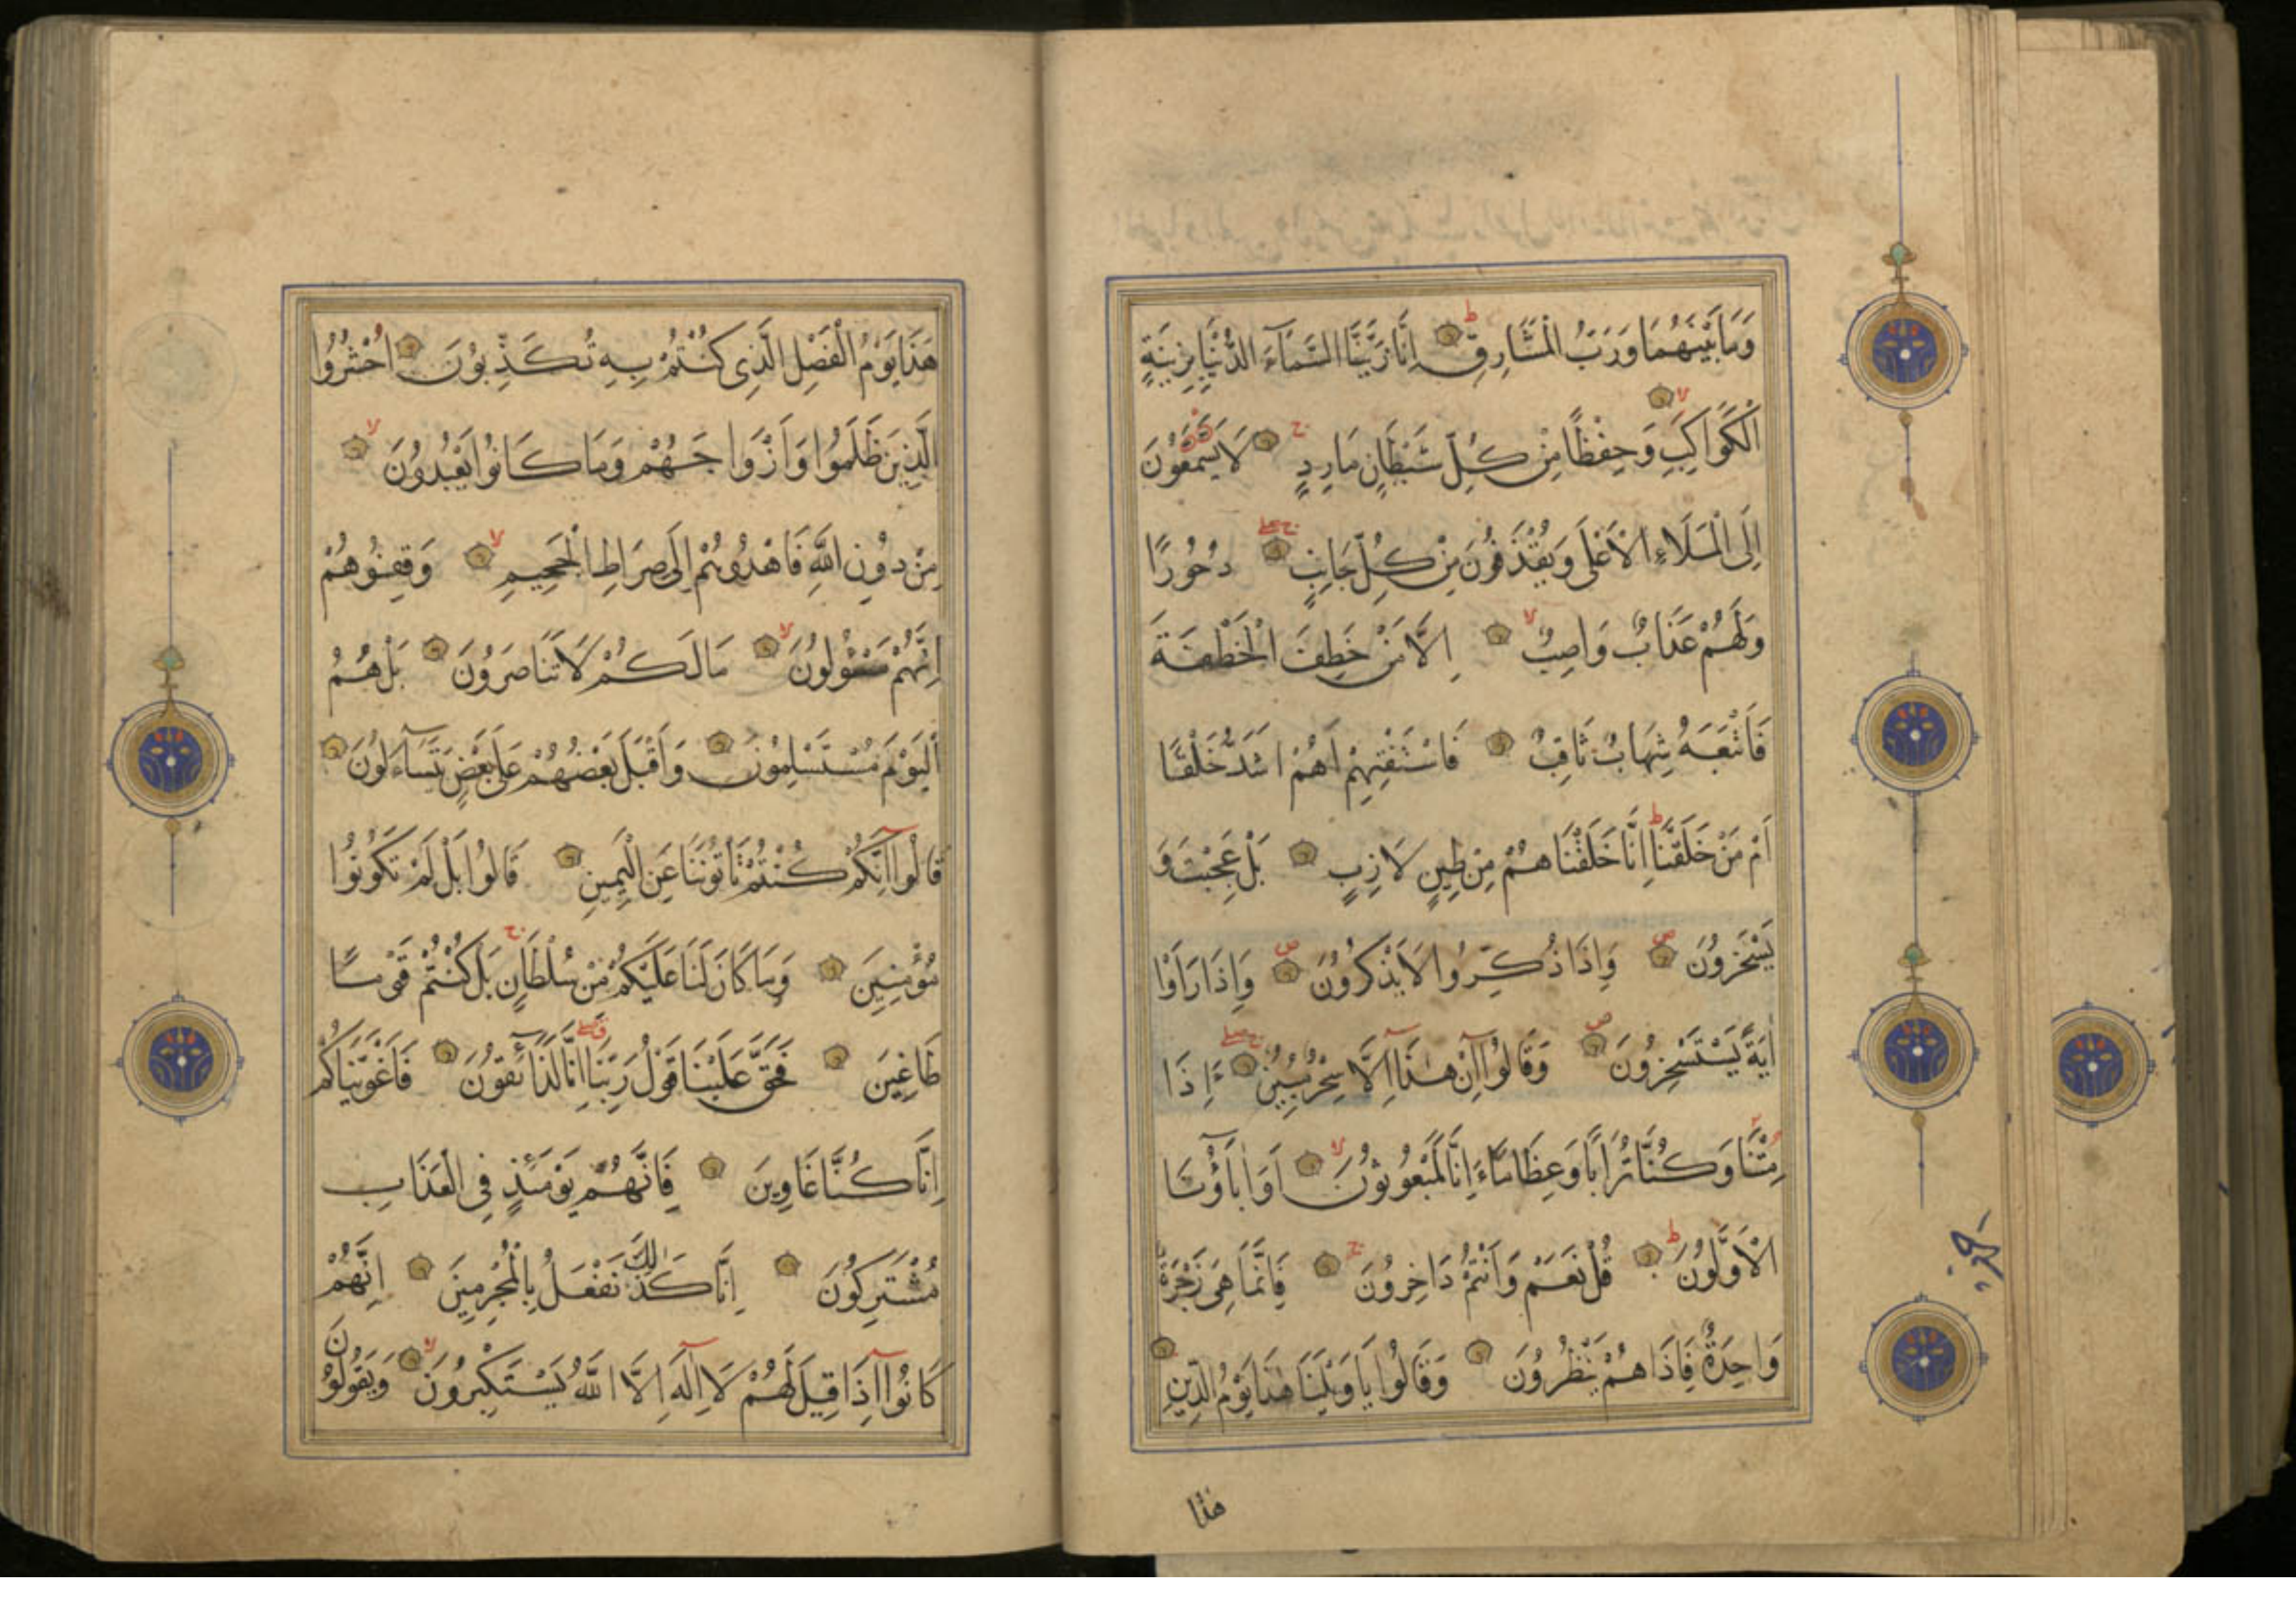 وَمَا بَيْنَهُمَا وَرَبُّ الْمَشَارِقِ ط اِنَّا زَيَّنَّا السَّمَآءَ الدُّنْيَا بِزِينَةٍ
الْكَوَاكِبِ لا وَحِفْظًا مِنْ كُلِّ شَيْطَانٍ مَارِدٍ ج لَا يَسَّمَّعُونَ
اِلَى الْمَلَاءِ الْاَعْلَى وَيُقْذَفُونَ مِنْ كُلِّ جَانِبٍ دُحُورًا
وَلَهُمْ عَذَابٌ وَاصِبٌ لا اِلَّا مَنْ خَطِفَ الْخَطْفَةَ
فَاَتْبَعَهُ شِهَابٌ ثَاقِبٌ فَاسْتَفْتِهِمْ اَهُمْ اَشَدُّ خَلْقًا
اَمْ مَنْ خَلَقْنَا ط اِنَّا خَلَقْنَاهُمْ مِنْ طِينٍ لَازِبٍ بَلْ عَجِبْتَ وَ
يَسْخَرُونَ ص وَاِذَا ذُكِّرُوا لَا يَذْكُرُونَ ص وَاِذَا رَاَوْا
اٰيَةً يَسْتَسْخِرُونَ ص وَقَالُوا اِنْ هٰذَا اِلَّا سِحْرٌ مُبِينٌ ءَاِذَا
مِتْنَا وَكُنَّا تُرَابًا وَعِظَامًا ءَاِنَّا لَمَبْعُوثُونَ لا اَوَاٰبَاؤُنَا
الْاَوَّلُونَ ط قُلْ نَعَمْ وَاَنْتُمْ دَاخِرُونَ ج فَاِنَّمَا هِيَ زَجْرَةٌ
وَاحِدَةٌ فَاِذَا هُمْ يَنْظُرُونَ وَقَالُوا يَا وَيْلَنَا هٰذَا يَوْمُ الدِّينِ
هذا
هَذَا يَوْمُ الْفَصْلِ الَّذِى كُنْتُمْ بِهِ تُكَذِّبُونَ اُحْشُرُوا
الَّذِينَ ظَلَمُوا وَاَزْوَاجَهُمْ وَمَا كَانُوا يَعْبُدُونَ لا
مِنْ دُونِ اللّٰهِ فَاهْدُوهُمْ اِلَى صِرَاطِ الْجَحِيمِ لا وَقِفُوهُمْ
اِنَّهُمْ مَسْئُولُونَ لا مَا لَكُمْ لَا تَنَاصَرُونَ بَلْ هُمُ
الْيَوْمَ مُسْتَسْلِمُونَ وَاَقْبَلَ بَعْضُهُمْ عَلَى بَعْضٍ يَتَسَآءَلُونَ
قَالُوا اِنَّكُمْ كُنْتُمْ تَاْتُونَنَا عَنِ الْيَمِينِ قَالُوا بَلْ لَمْ تَكُونُوا
مُؤْمِنِينَ وَمَا كَانَ لَنَا عَلَيْكُمْ مِنْ سُلْطَانٍ ج بَلْ كُنْتُمْ قَوْمًا
طَاغِينَ فَحَقَّ عَلَيْنَا قَوْلُ رَبِّنَا اِنَّا لَذَآئِقُونَ فَاَغْوَيْنَاكُمْ
اِنَّا كُنَّا غَاوِينَ فَاِنَّهُمْ يَوْمَئِذٍ فِى الْعَذَابِ
مُشْتَرِكُونَ اِنَّا كَذٰلِكَ نَفْعَلُ بِالْمُجْرِمِينَ اِنَّهُمْ
كَانُوا اِذَا قِيلَ لَهُمْ لَا اِلٰهَ اِلَّا اللّٰهُ يَسْتَكْبِرُونَ لا وَيَقُولُونَ